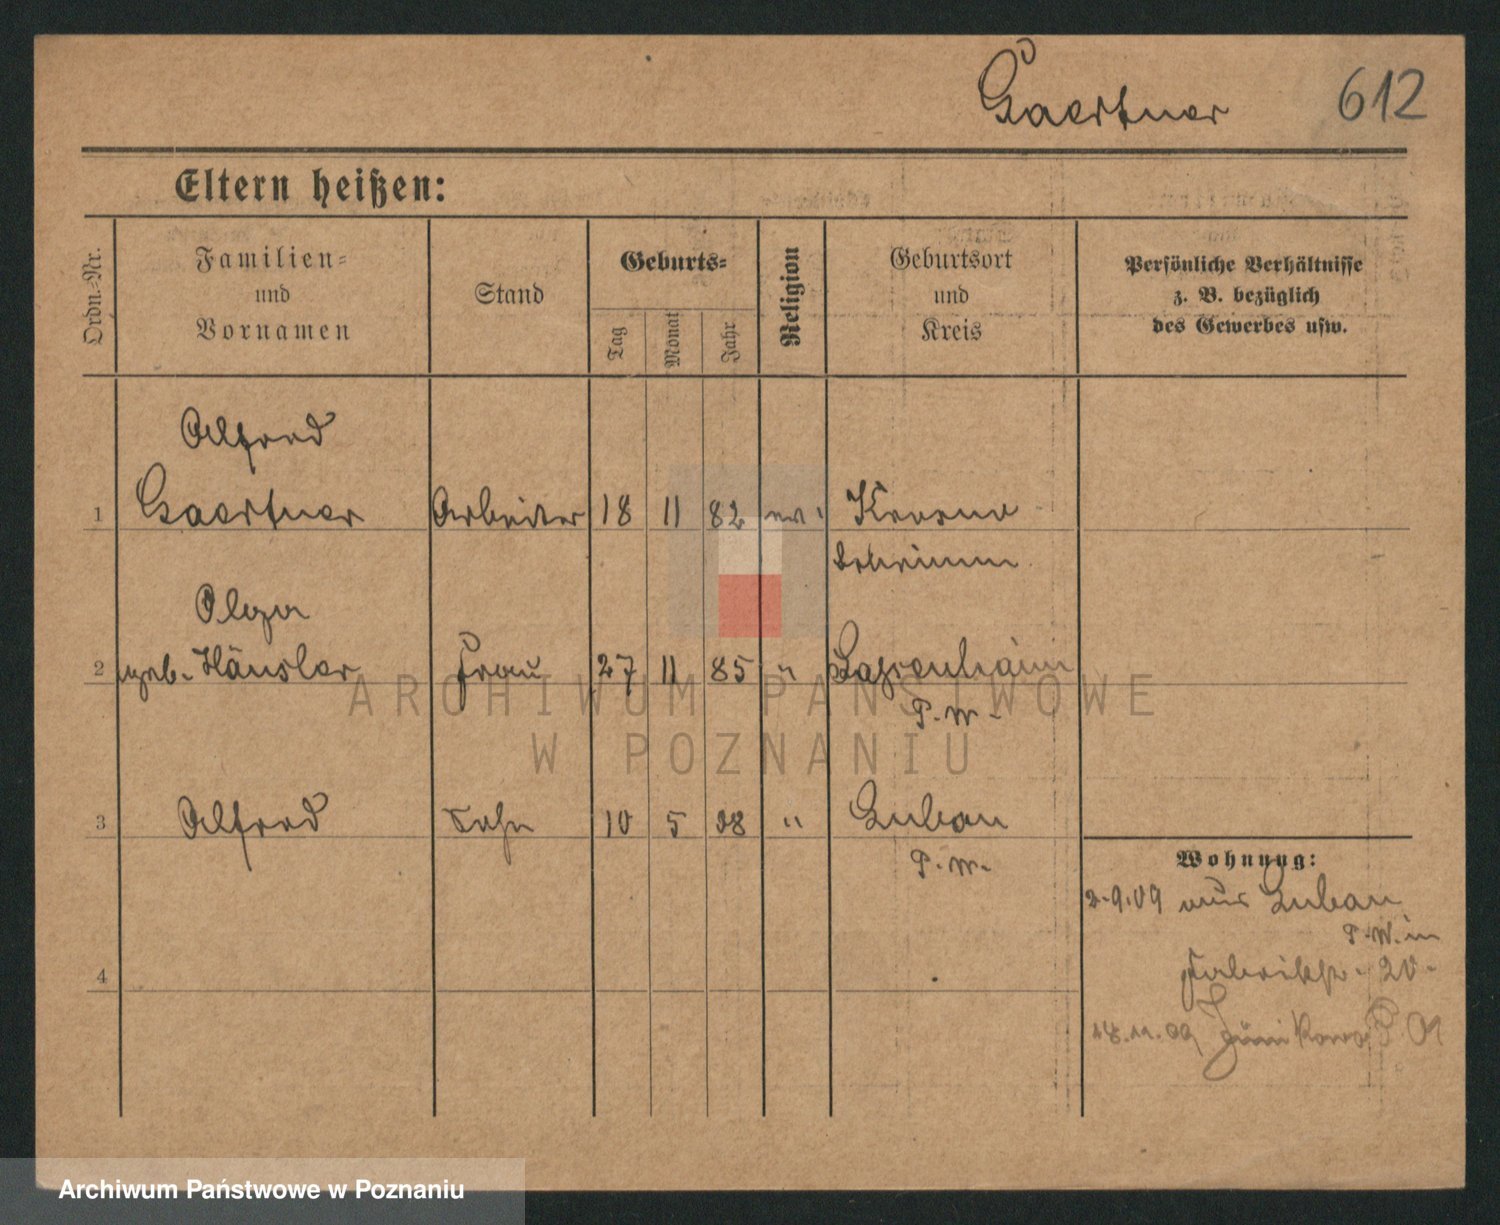 Gaertner 612
Eltern heißen:
Ordn.=Nr.
Familien=
und
Vornamen
Stand
Geburts=
Tag
Monat
Jahr
Religion
Geburtsort
und
Kreis
Persönliche Verhältnisse
z. B. bezüglich
des Gewerbes usw.
Alfred
1 Gaertner Arbeiter 18 11 82 ev. Krosno
Schrimm
Olga
2 geb. Häusler Frau 27 11 85 "
P. W.
3 Alfred Sohn 10 5 08 " Luban
P. W.
Wohnung:
2.9.09 aus Luban
P. W. in
Fabrikstr. 20.
4
18.11.09 Junikowo P. O.
ARCHIWUM PAŃSTWOWE
W POZNANIU
Archiwum Państwowe w Poznaniu